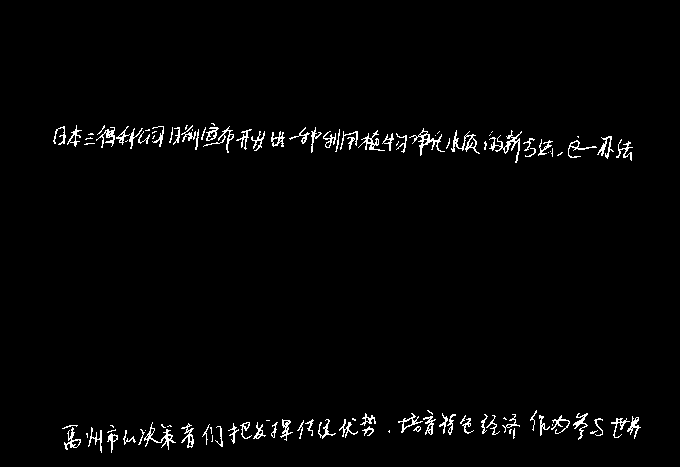 日本三得利公司日前宣布开发出一种利用植物净化水质的新方法,这一办法
高州市的决策者们把发挥传统优势,培育特色经济作为参与世界